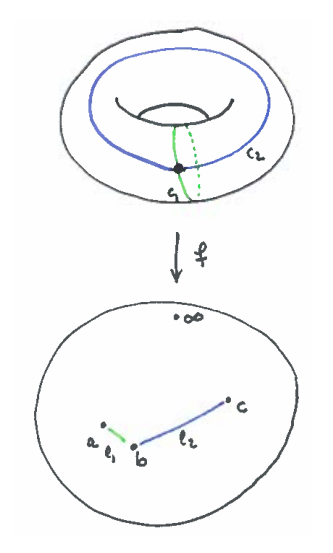 c₂
c₁
f
∞
a
c
l₁
b
l₂